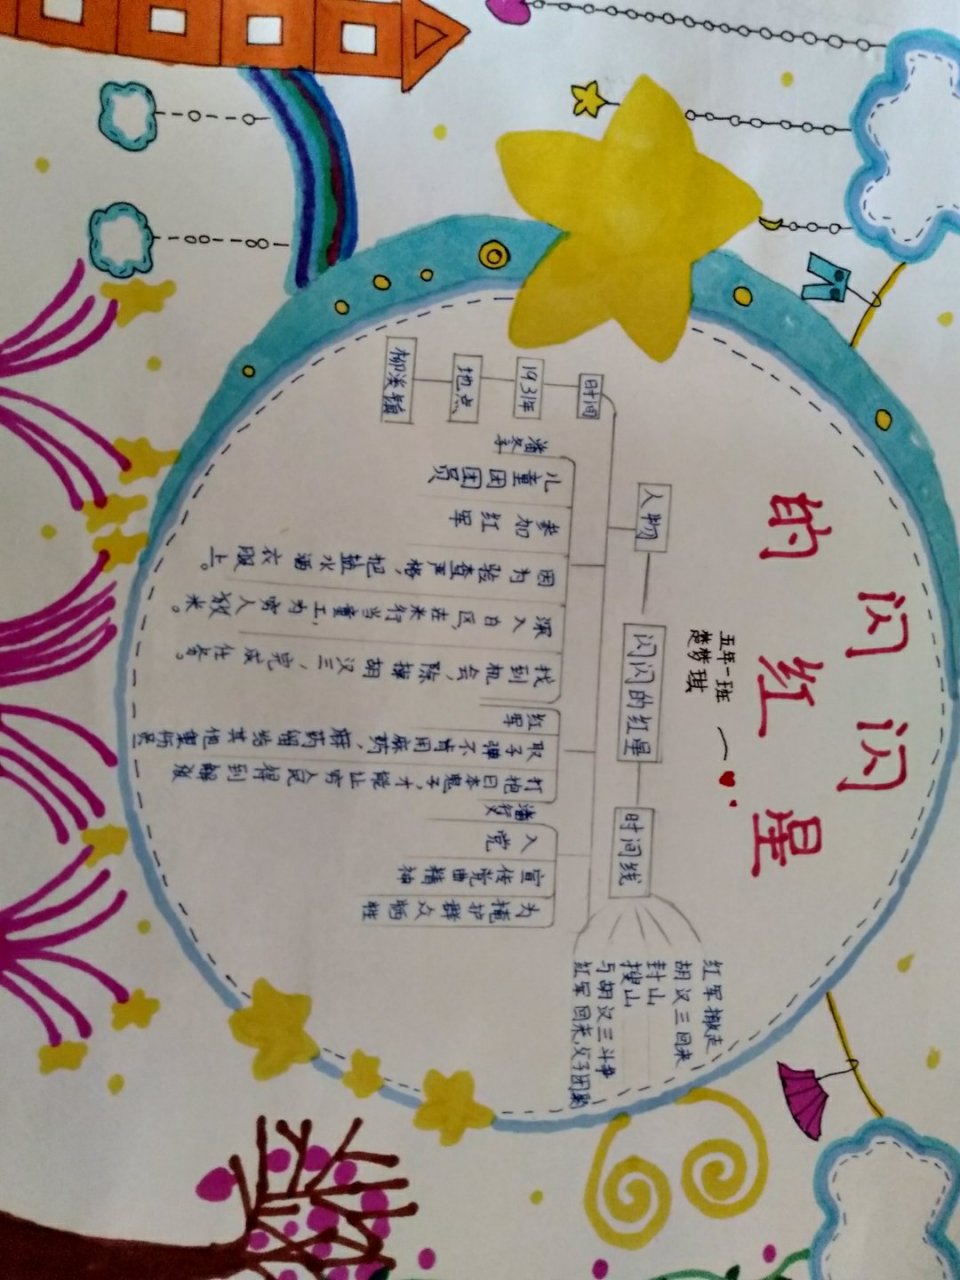 闪闪
的红星
五年一班
楚梦琪
人物
闪闪的红星
时间线
时间
1931年
地点
柳溪镇
潘冬子
儿童团团员
参加红军
因为检查严格，把盐水洒衣服上。
深入白区，在米行当童工为穷人找米。
找到机会，除掉胡汉三，完成任务。
红军
取子弹不肯用麻药，麻药留给其他重伤员
打跑日本鬼子，才能让穷人民得到解放
入党
宣传党曲精神
为掩护群众牺牲
红军撤走
胡汉三回来
封山
搜山
与胡汉三斗争
红军回来，父子团聚